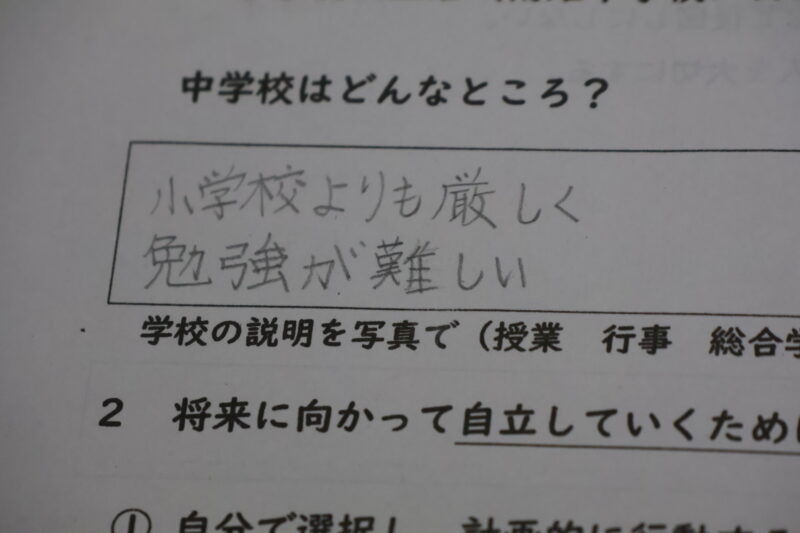 中学校はどんなところ？
小学校よりも厳しく
勉強が難しい
学校の説明を写真で（授業　行事　総合学
2　将来に向かって自立していくため
① 自分で選択し、計画的に行動する